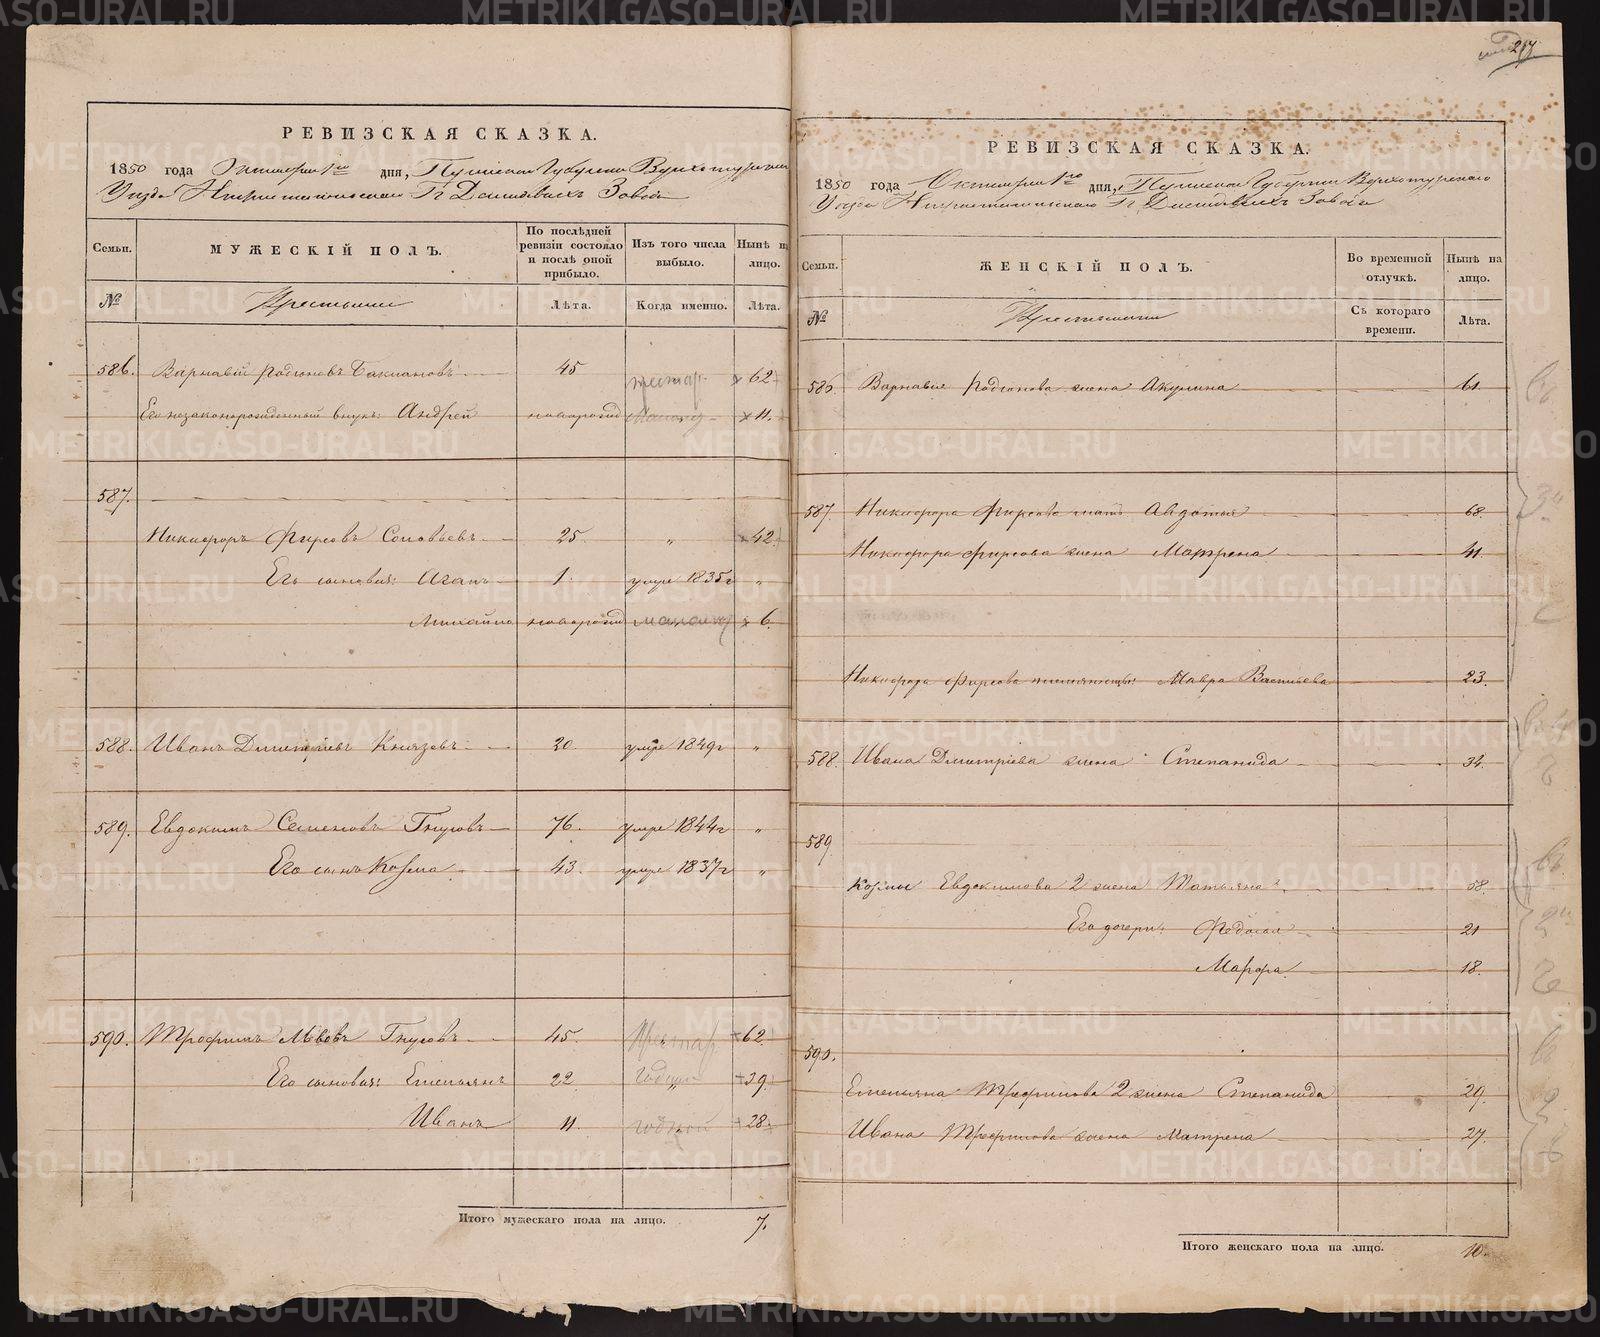 217
РЕВИЗСКАЯ СКАЗКА.
1850 года Октября 1го дня, Пермской Губернии Верхотурскаго
Уезда Нижнетагильскаго Гг Демидовыхъ Завода
Семьи. МУЖЕСКІЙ ПОЛЪ. По послѣдней ревизіи состояло и послѣ оной прибыло. Изъ того числа выбыло. Нынѣ на лицо.
№ Крестьяне Лѣта. Когда именно. Лѣта.
586. Варнавій Родіоновъ Баклановъ 45 престар. 62
Его незаконорожденный внукъ: Андрей новорожд малолѣт 11.
587.
Никифоръ Фирсовъ Соловьевъ 25. „ 42
Его сыновья: Агапъ 1. умре 1835г „
Михайло новорожд малолѣт 6.
588. Иванъ Дмитріевъ Князевъ 20. умре 1849г „
589. Евдокимъ Семеновъ Гнусовъ 76. умре 1844г „
Его сынъ Козма 43. умре 1837г „
590. Трофимъ Львовъ Гнусовъ 45. Престар 62
Его сыновья: Емельянъ 22. годный 39.
Иванъ 11. годной 28
Итого мужескаго пола на лицо. 7.
РЕВИЗСКАЯ СКАЗКА.
1850 года Октября 1го дня, Пермской Губерніи Верхотурскаго
Уезда Нижнетагильскаго Гг Демидовыхъ Завода
Семьи. ЖЕНСКІЙ ПОЛЪ. Во временной отлучкѣ. Нынѣ на лицо.
№ Крестьянки Съ котораго времени. Лѣта.
586 Варнавія Родіонова жена Акулина 61.
587. Никифора Фирсова мать Авдотья 68.
Никифора Фирсова жена Матрена 41.
Никифора Фирсова племянница: Мавра Васильева 23.
588. Ивана Дмитріева жена Степанида 34.
589
Козмы Евдокимова 2 жена Татьяна 58.
Его дочери: Федосья 21
Марфа 18.
590.
Емельяна Трофимова 2 жена Степанида 29.
Ивана Трофимова жена Матрена 27.
Итого женскаго пола на лицо. 10.
METRIKI.GASO-URAL.RU